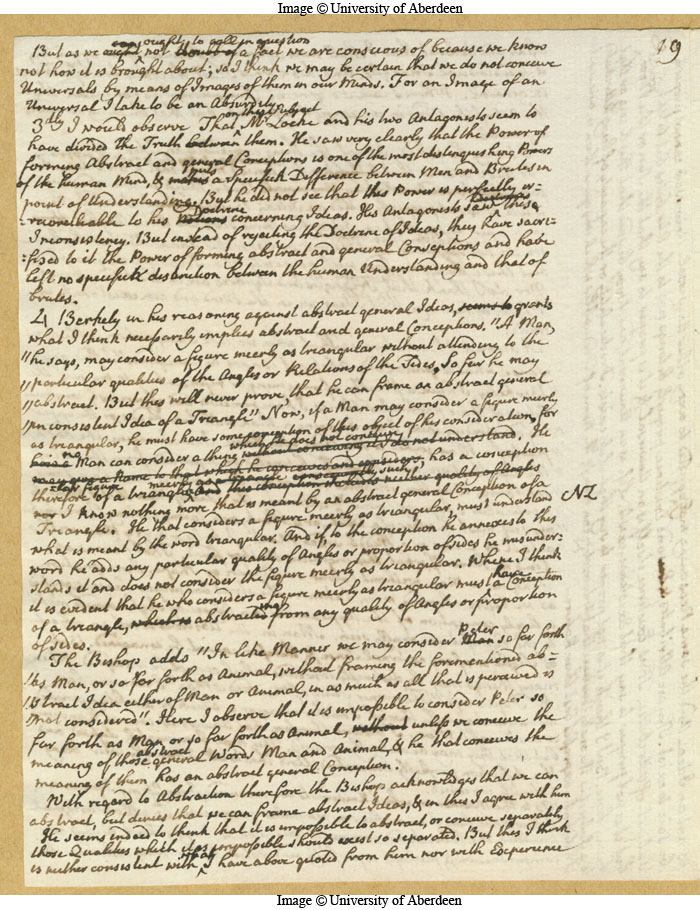 Image © University of Aberdeen
19
ought to call in question
But as we ought not a fact we are conscious of because we know
not how it is brought about; so I think we may be certain that we do not conceive
Universals by means of Images of them in our Minds. For an Image of an
Universal I take to be an Absurdity.
on this subject
3dly I would observe That Mr Locke and his two Antagonists seem to
have divided the Truth between them. He saw very clearly that the Power of
forming Abstract and general Conceptions is one of the most distinguishing Powers
of the human Mind, & makes a Specifick Difference between Men and Brutes in
point of Understanding. But he did not see that this Power is perfectly ir-
Doctrine
=reconcileable to his Notions concerning Ideas. His Antagonists saw this
Inconsistency, But instead of rejecting the Doctrine of Ideas, they have sacri-
=ficed to it the Power of forming abstract and general Conceptions and have
left no specifick distinction between the human Understanding and that of
brutes.
4 Berkely in his reasoning against abstract general Ideas, seems to grants
what I think necessarily implies abstract and general Conceptions. "A Man,
"he says, may consider a figure meerly as triangular without attending to the
"particular qualities of the Angles or Relations of the Sides. So far he may
"abstract. But this will never prove, that he can frame an abstract general
"inconsistent Idea of a Triangle" Now, if a Man may consider a figure meerly
as triangular, he must have some conception of this object of his consideration, for
which he does not conceive
no Man can consider a thing without conceiving it & do not understand. He
may give a Name to that which he conceives and considers, has a conception
therefore of a triangular figure meerly as such
nor I know nothing more that is meant by an abstract general Conception of a
Triangle. He that considers a figure meerly as triangular, must understand
NL
what is meant by the word triangular. And if to the conception he annexes to this
word he adds any particular quality of Angles or proportion of sides he misunder-
stands it and does not consider the figure meerly as triangular. Whence I think
it is evident that he who considers a figure meerly as triangular must have a Conception
of a triangle, which is abstracting from any quality of Angles or proportion
of sides.
The Bishop adds "In like Manner we may consider Peter so far forth
"as Man, or so far forth as Animal, without framing the forementioned ab-
"stract Idea either of Man or Animal, in as much as all that is perceived is
"not considered". Here I observe that it is impossible to consider Peter so
far forth as Man or so far forth as Animal, without unless we conceive the
abstract
meaning of those general Words Man and Animal, & he that conceives the
meaning of them has an abstract general Conception.
With regard to Abstraction therefore the Bishop acknowledges that we can
abstract, but denies that we can frame abstract Ideas, & in this I agree with him
He seems indeed to think that it is impossible to abstract, or conceive separately
those Qualities which it is impossible should exist so separated. But this I think
is neither consistent with what I have above quoted from him nor with Experience
Image © University of Aberdeen